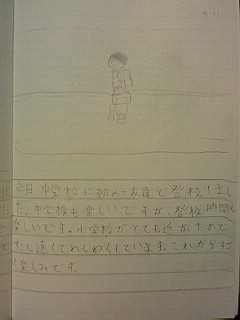 4.11
今日中学校に初めて友達と登校しまし
た。中学校も楽しいですが、登校時間も
楽しいです。小学校がとても近かたので
すし遠くてわくわくしています。これからも
楽しみです。